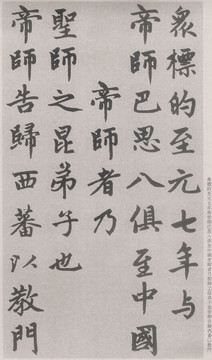 衆標的至元七年與
帝師巴思八俱至中國
帝師者乃
聖師之昆弟子也
帝師告歸西蕃以教門